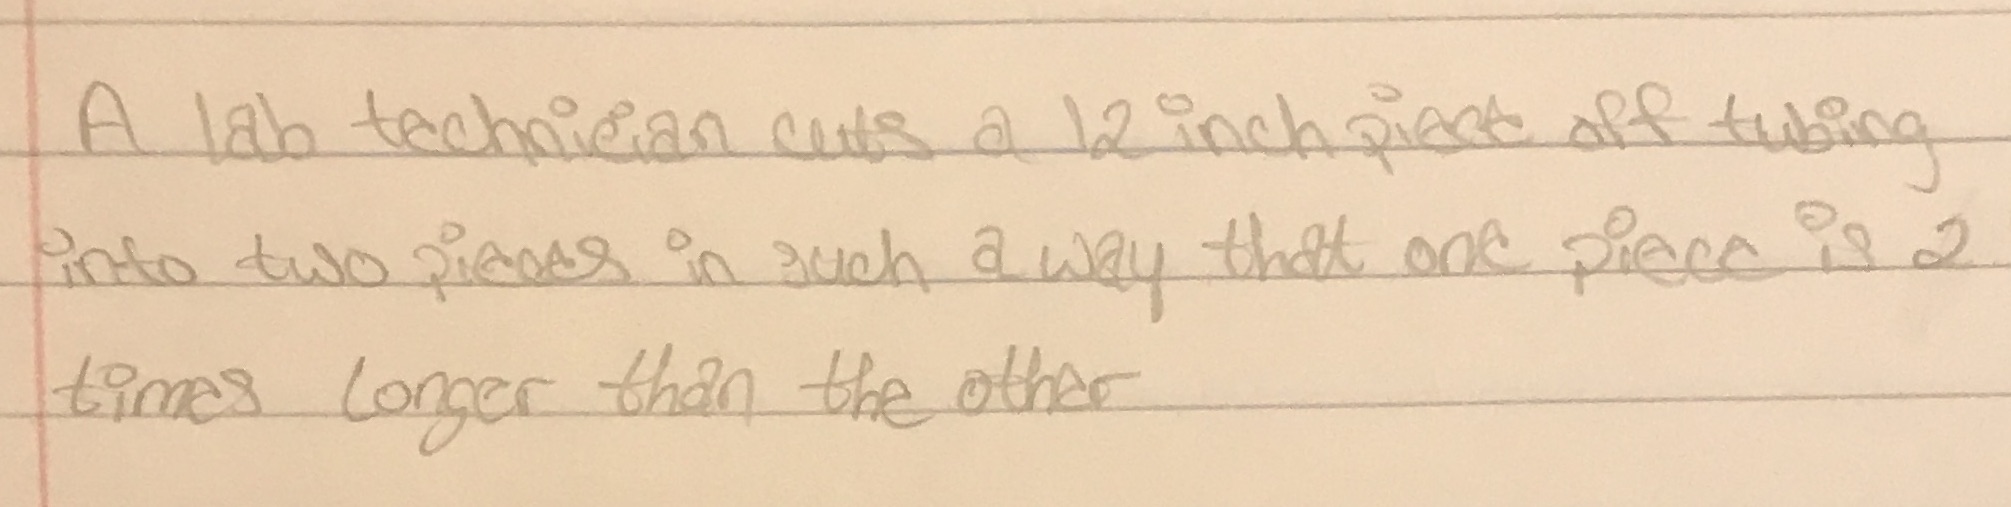 A lab technician cuts a 12 inch piece off tubing
into two pieces in such a way that one piece is 2
times longer than the other